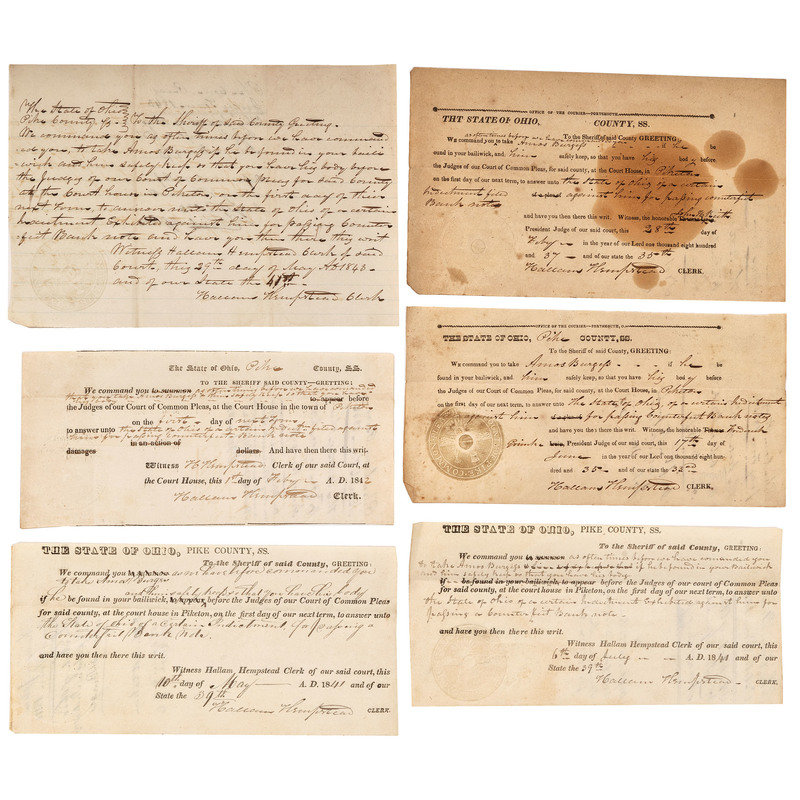 The State of Ohio
Pike County SS To the Sheriff of Said County Greeting
We command you as often times before we have command
ed you, to take Amos Burgess if he be found in your baili
wick and him safely keep so that you have his body before
the Judges of our Court of Common pleas for Said County
at the Court house in Piketon on the first day of their
next term, to answer unto the State of Ohio of a certain
Indictment Exhibited against him for passing Counter
feit Bank note and have you then there this writ
Witness Hallam Hempstead Clerk of said
Court, this 29th day of May AD 1843
and of our State the 41st
Hallam Hempstead Clerk
The State of Ohio, Pike County, SS.
TO THE SHERIFF SAID COUNTY—GREETING:
We command you to summon as often times before we have commanded
you that you take Amos Burgess him safely keep so that you have his
to appear before
the Judges of our Court of Common Pleas, at the Court House in the town of Piketon
on the first day of next term
to answer unto the State of Ohio of a certain Indict. filed against
him for passing Counterfeit Bank note
damages in an action of dollars. And have then there this writ.
Witness H Hempstead Clerk of our said Court, at
the Court House, this 1st day of Feby A. D. 1842
Hallam Hempstead Clerk.
THE STATE OF OHIO, PIKE COUNTY, SS.
To the Sheriff of said County, GREETING:
We command you to summon as we have before commanded you
to take Amos Burgess
and him safely keep so that you have his body
if he be found in your bailiwick, to appear before the Judges of our Court of Common Pleas
for said county, at the court house in Piketon, on the first day of our next term, to answer unto
the State of Ohio of a Certain Indictment for passing a
Counterfeit Bank Note
and have you then there this writ.
Witness Hallam Hempstead Clerk of our said court, this
10th day of May A. D. 1841 and of our
State the 39th
Hallam Hempstead CLERK.
OFFICE OF THE COURIER—PORTSMOUTH.
THE STATE OF OHIO, COUNTY, SS.
as often times before we have
To the Sheriff of said County GREETING:
We command you to take Amos Burgess he be
ound in your bailiwick, and him safely keep, so that you have his body before
the Judges of our Court of Common Pleas, for said county, at the Court House, in Piketon
on the first day of our next term, to answer unto the State of Ohio of a certain
Indictment filed against him for passing counterfeit
Bank note
and have you then there this writ. Witness, the honorable John H Keith
President Judge of our said court, this 28th day of
Feby in the year of our Lord one thousand eight hundred
and 37 and of our state the 35th
Hallam Hempstead CLERK.
OFFICE OF THE COURIER—PORTSMOUTH, O.
THE STATE OF OHIO, Pike COUNTY, SS.
To the Sheriff of said County, GREETING:
We command you to take Amos Burgess if he be
found in your bailiwick, and him safely keep, so that you have his body before
the Judges of our Court of Common Pleas, for said county, at the Court House, in Piketon
on the first day of our next term, to answer unto The State of Ohio of a certain Indictment
against him for passing Counterfeit Bank note
and have you then there this writ. Witness, the honorable Frederick
Grimke President Judge of our said court, this 17th day of
June in the year of our Lord one thousand eight hun-
dred and 35 and of our state the 33rd
Hallam Hempstead CLERK,
THE STATE OF OHIO, PIKE COUNTY, SS.
To the Sheriff of said County, GREETING:
We command you to summon as often times before we have commanded you
to take Amos Burgess if he be found in your Bailiwick
and him safely keep so that you have his body
if he be found in your bailiwick, to appear before the Judges of our Court of Common Pleas
for said county, at the court house in Piketon, on the first day of our next term, to answer unto
the State of Ohio of a certain Indictment Exhibited against him for
passing a Counterfeit Bank note
and have you then there this writ.
Witness Hallam Hempstead Clerk of our said court, this
6th day of July A. D. 1841 and of our
State the 39th
Hallam Hempstead CLERK.